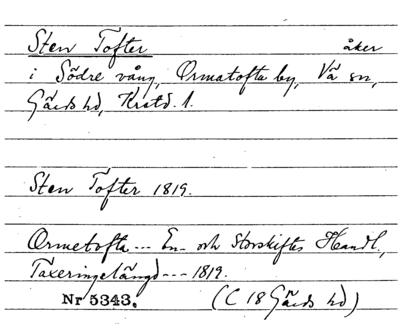 Sten Tofter åker
i Södre vång, Ormatofta by, Vä sn,
Gärds hd, Krstd. l.
Sten Tofter 1819.
Ormetofta --- En- och Storskiftes Handl.,
Taxeringslängd --- 1819.
Nr 5343. (C 18 Gärds hd)